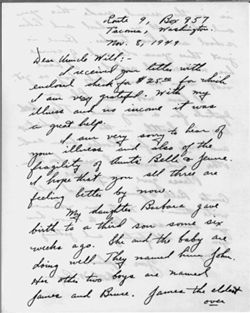 Route 9, Box 957
Tacoma, Washington.
Nov. 8, 1949
Dear Uncle Will:-
I received your letter with
enclosed check for $25.00 for which
I am very grateful. With my
illness and no income it was
a great help.
I am very sorry to hear of
your illness and also of the
fragility of Aunts Belle & Jennie.
I hope that you all three are
feeling better by now.
My daughter Barbara gave
birth to a third son some six
weeks ago. She and the baby are
doing well. They named him John.
Her other two boys are named
James and Bruce. James the eldest
over